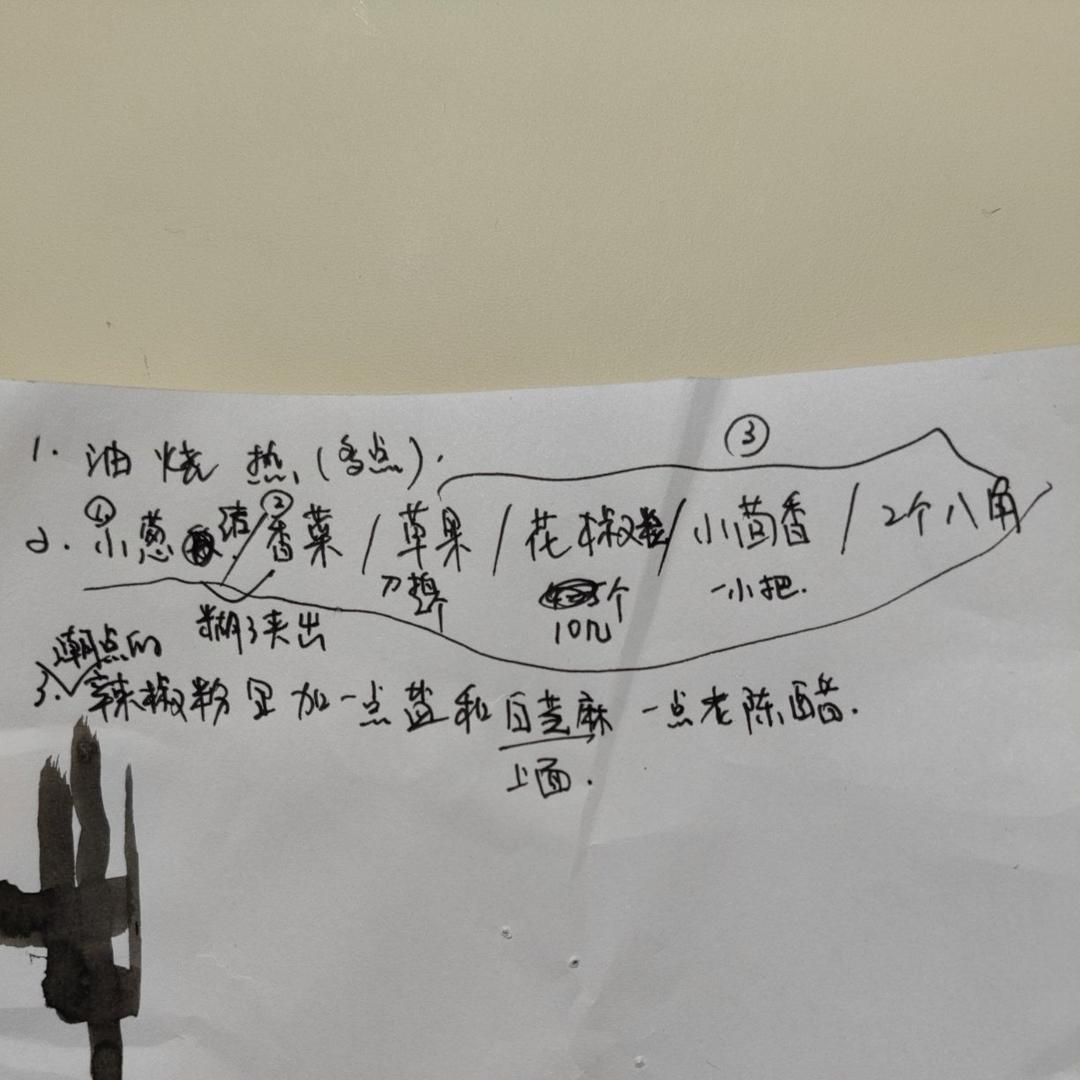 1. 油烧热(多点).
③
① ②
2. 小葱 / 香菜 / 草果 / 花椒 / 小茴香 / 2个八角
个 一小把.
糊了夹出 10几
潮点的
3. 辣椒粉里加一点盐和白芝麻 一点老陈醋.
上面.